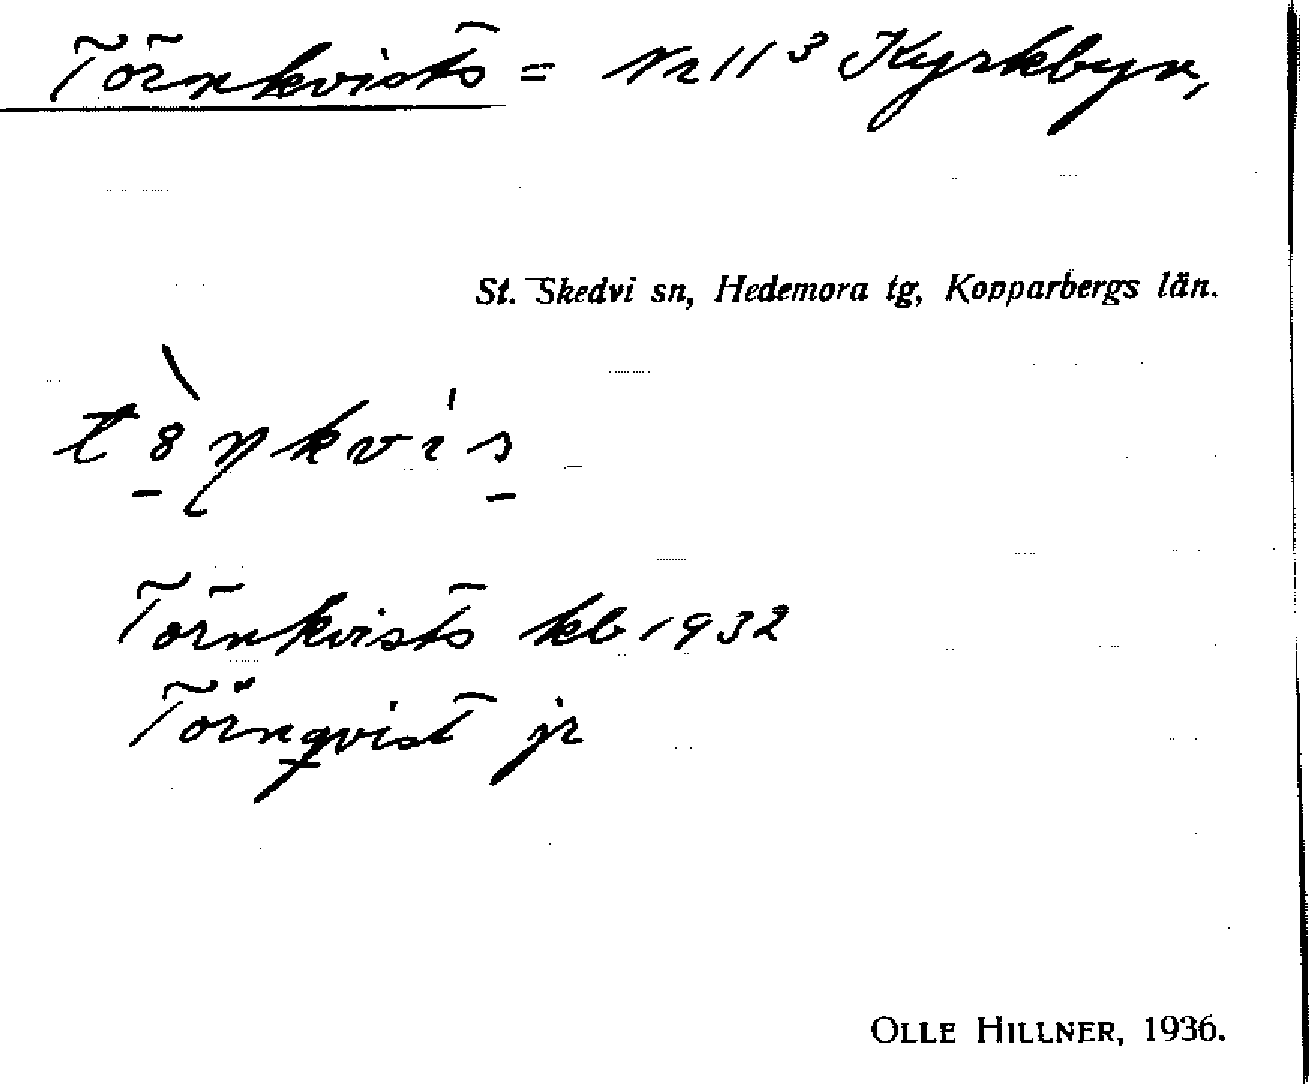 Törnkvists = Nr 11³ Kyrkbyn,
St. Skedvi sn, Hedemora tg, Kopparbergs län.
Törnkvists kb 1932
Törnqvist jr
OLLE HILLNER, 1936.